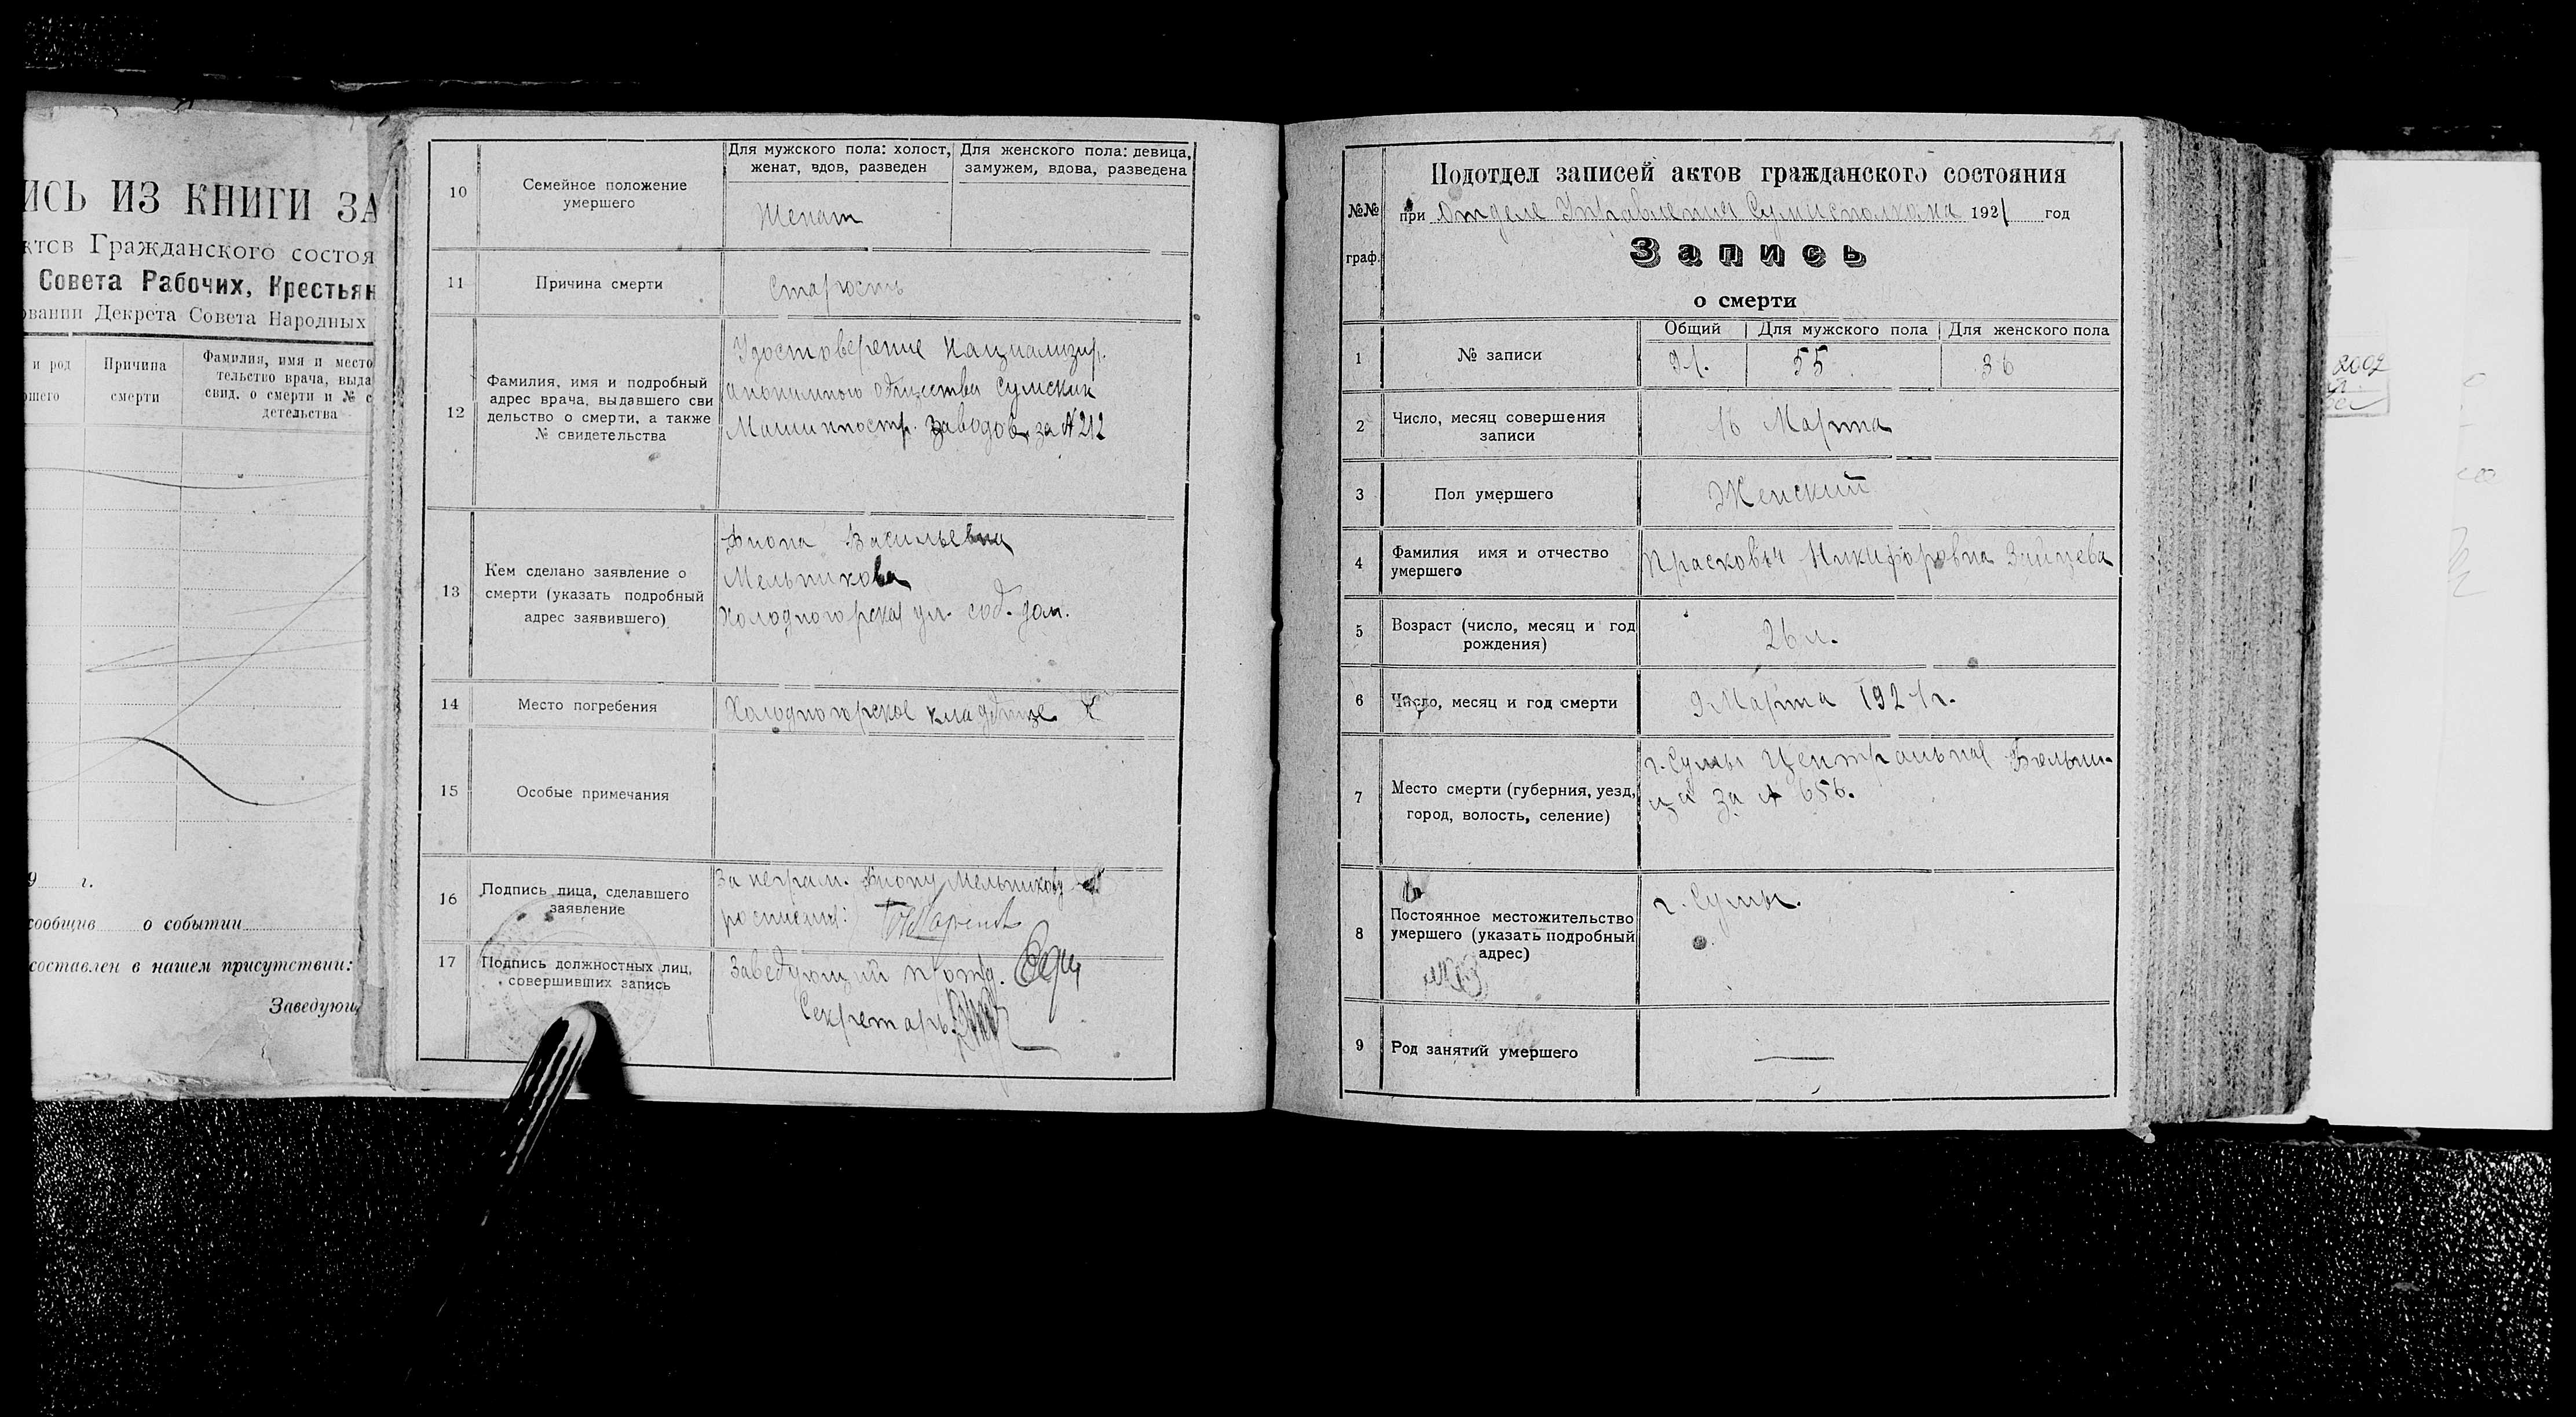 ИСЬ ИЗ КНИГИ ЗА
ктов Гражданского состоя
Совета Рабочих, Крестьян
овании Декрета Совета Народных
и род
шего
Причина
смерти
Фамилия, имя и место
тельство врача, выда
свид. о смерти и № с
детельства
9 г.
сообщив о событии
составлен в нашем присутствии:
Заведующ
10
Семейное положение
умершего
Для мужского пола: холост,
женат, вдов, разведен
Для женского пола: девица,
замужем, вдова, разведена
Женат
11
Причина смерти
Старость
12
Фамилия, имя и подробный
адрес врача, выдавшего сви
дельство о смерти, а также
№ свидетельства
Удостоверение Национализир.
анонимного общества Сумских
Машинностр. заводов, за №212
13
Кем сделано заявление о
смерти (указать подробный
адрес заявившего)
Фиона Васильевна
Мельникова
Холодногорская ул. соб. дом.
14
Место погребения
Холодногорское кладбище
15
Особые примечания
16
Подпись лица, сделавшего
заявление
За неграм. Фиону Мельникову
росписался:
17
Подпись должностных лиц,
совершивших запись
Заведующий п/отд.
Секретарь
№№
граф.
Подотдел записей актов гражданского состояния
при Отделе Управления Сумисполкома 1921 год
Запись
о смерти
1
№ записи
Общий
Для мужского пола
Для женского пола
91.
55
36
2
Число, месяц совершения
записи
16 Марта
3
Пол умершего
Женский
4
Фамилия имя и отчество
умершего
Прасковья Никифоровна Зайцева
5
Возраст (число, месяц и год
рождения)
26 л.
6
Число, месяц и год смерти
9 Марта 1921 г.
7
Место смерти (губерния, уезд,
город, волость, селение)
г. Сумы Центральная Больни-
ца за № 656.
8
Постоянное местожительство
умершего (указать подробный
адрес)
г. Сумы.
9
Род занятий умершего
2002